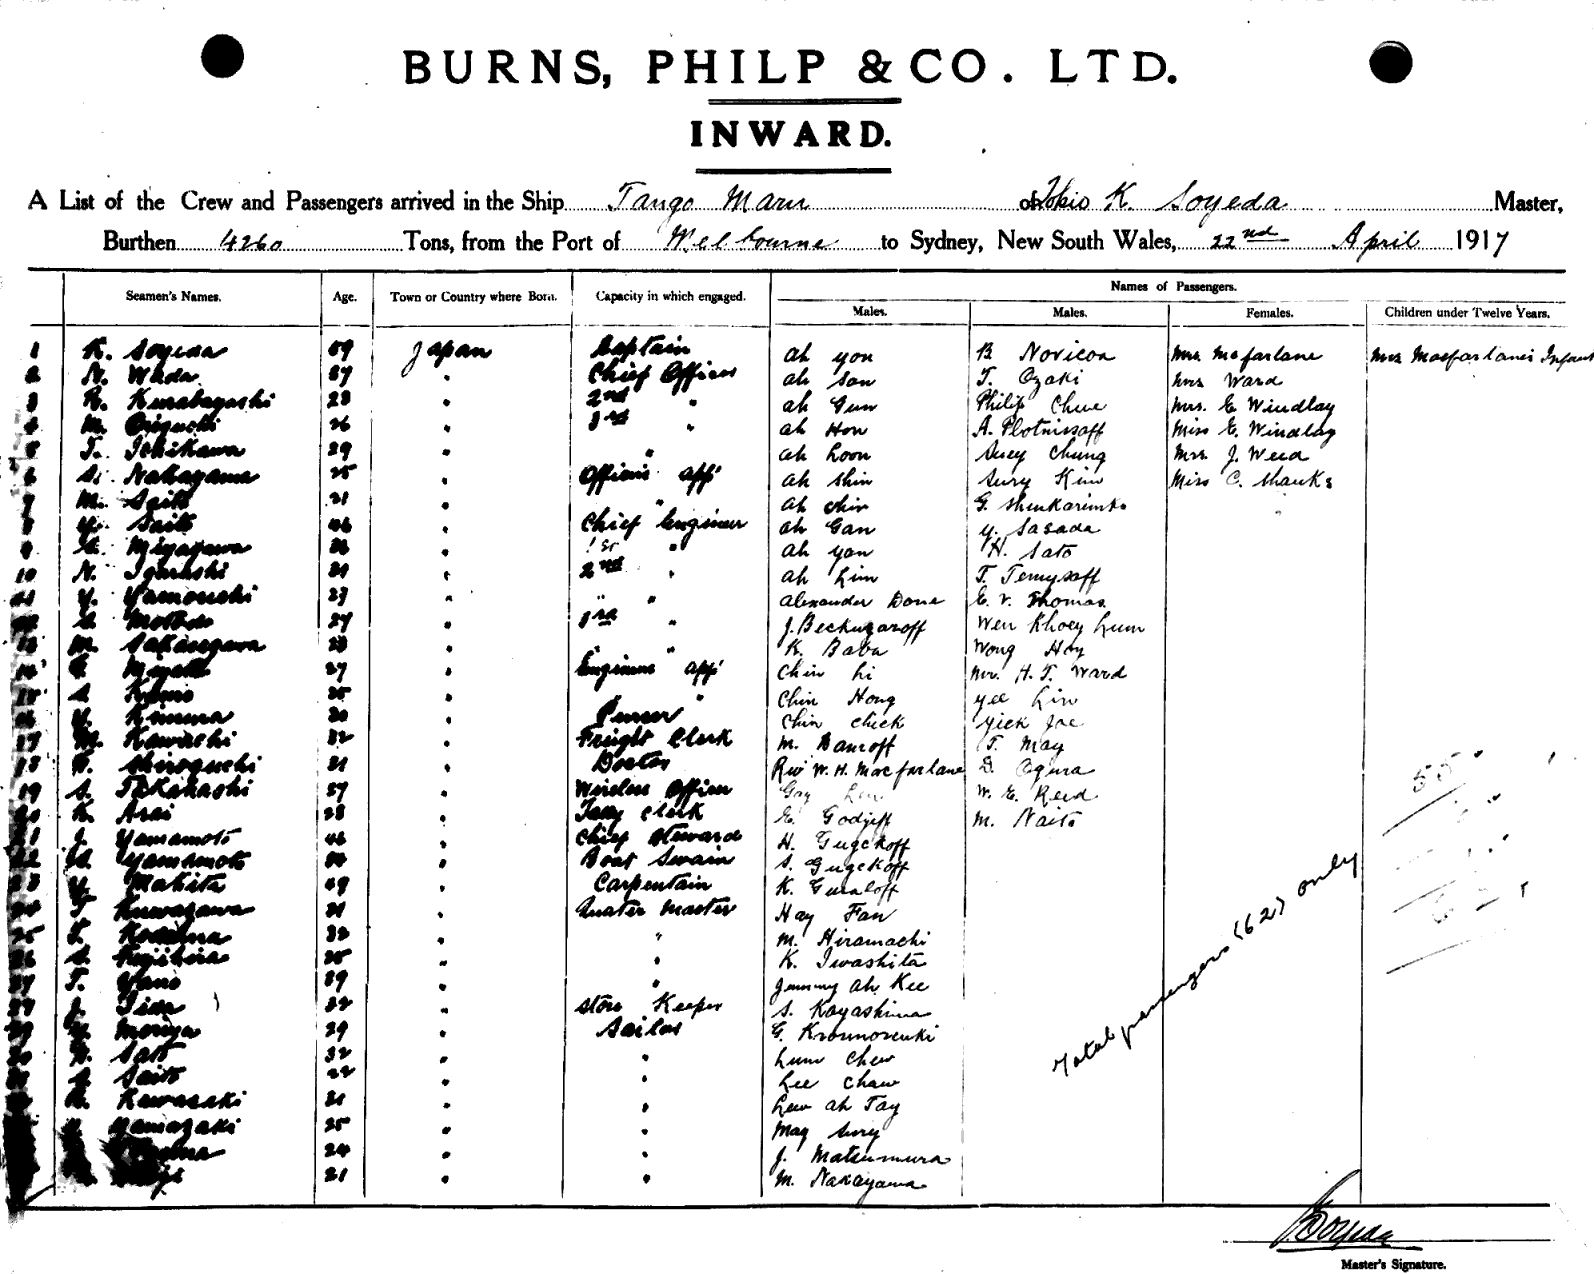 BURNS, PHILP & CO. LTD.
INWARD.
A List of the Crew and Passengers arrived in the Ship Tango Maru of Tokio K. Soyeda Master,
Burthen 4260 Tons, from the Port of Melbourne to Sydney, New South Wales, 22nd April 1917
Seamen's Names. Age. Town or Country where Born. Capacity in which engaged. Names of Passengers.
Males. Males. Females. Children under Twelve Years.
1 K. Soyeda 59 Japan Captain Ah Yon B Novicoa Mrs Macfarlane Mrs Macfarlane's Infant
2 N. Wada 37 " Chief Officer Ah San T. Ozaki Mrs Ward
3 R. Kurabayashi 28 " 2nd " Ah Gun Philip Chue Mrs. E Windlay
4 M. 26 " 3rd " Ah Hon A. Plotnissoff Miss E. Windlay
5 T. Ichikawa 29 " " Ah Loon Suey Chung Mrs J. Weid
6 S. Nakayama 25 " Officers app' Ah Shin Sury Kim Miss C. Shanks
7 M. Saito 21 " " Ah Chin G.
8 Y. Saito 46 " Chief Engineer Ah Gan Y. Sasada
9 Miyagawa " 1st " Ah Yan H. Sato
10 N. Igarashi 31 " 2nd " Ah Lim T.
Y. Yamouchi 27 " " " Alexander Done E. V. Thomas
27 " 3rd " J. Beckuzaroff Wen Khoey Lum
13 M. Sakaegawa 23 " " K. Baba Wong Hoy
14 27 " Engineers app' Chin Li Mr. H. T. Ward
15 S. 25 " " Chin Hong Yee Lin
16 Y. Kimura 30 " Purser Chin Chick Yick Joe
17 M. Kawashi 32 " Freight Clerk M. Banroff T. May
18 Shiroguchi 31 " Doctor Rev W. H. Macfarlane D. Ogura
19 S. Takahashi 37 " Wireless Officer Gay W. E. Reid
20 K. Arai 28 " Tally Clerk E. Godjeff M. Naito
21 J. Yamamoto 46 " Chief Steward H. Gugckoff
22 Yamamoto " Boat Swain S. Gugckoff
23 Y. Makita 49 " Carpentain K.
24 T Kuwazawa 31 " Quater Master Hay Fan
25 32 " " M. Hiramachi
26 S. Fujihira 25 " " K. Iwashita
27 T. Yano 39 " " Jimmy Ah Kee
J. Iida 32 " Store Keeper S. Kayashima
29 Moriya 29 " Sailor G.
30 Sato 32 " " Lum Chew
S. Saito 22 " " Lee Chaw
Kawasaki 21 " " Lew Ah Tay
Yamazaki 25 " " May Sury
24 " " J. Matsumura
21 " " M. Nakayama
55
62
Total passengers (62) only
K Soyeda
Master's Signature.